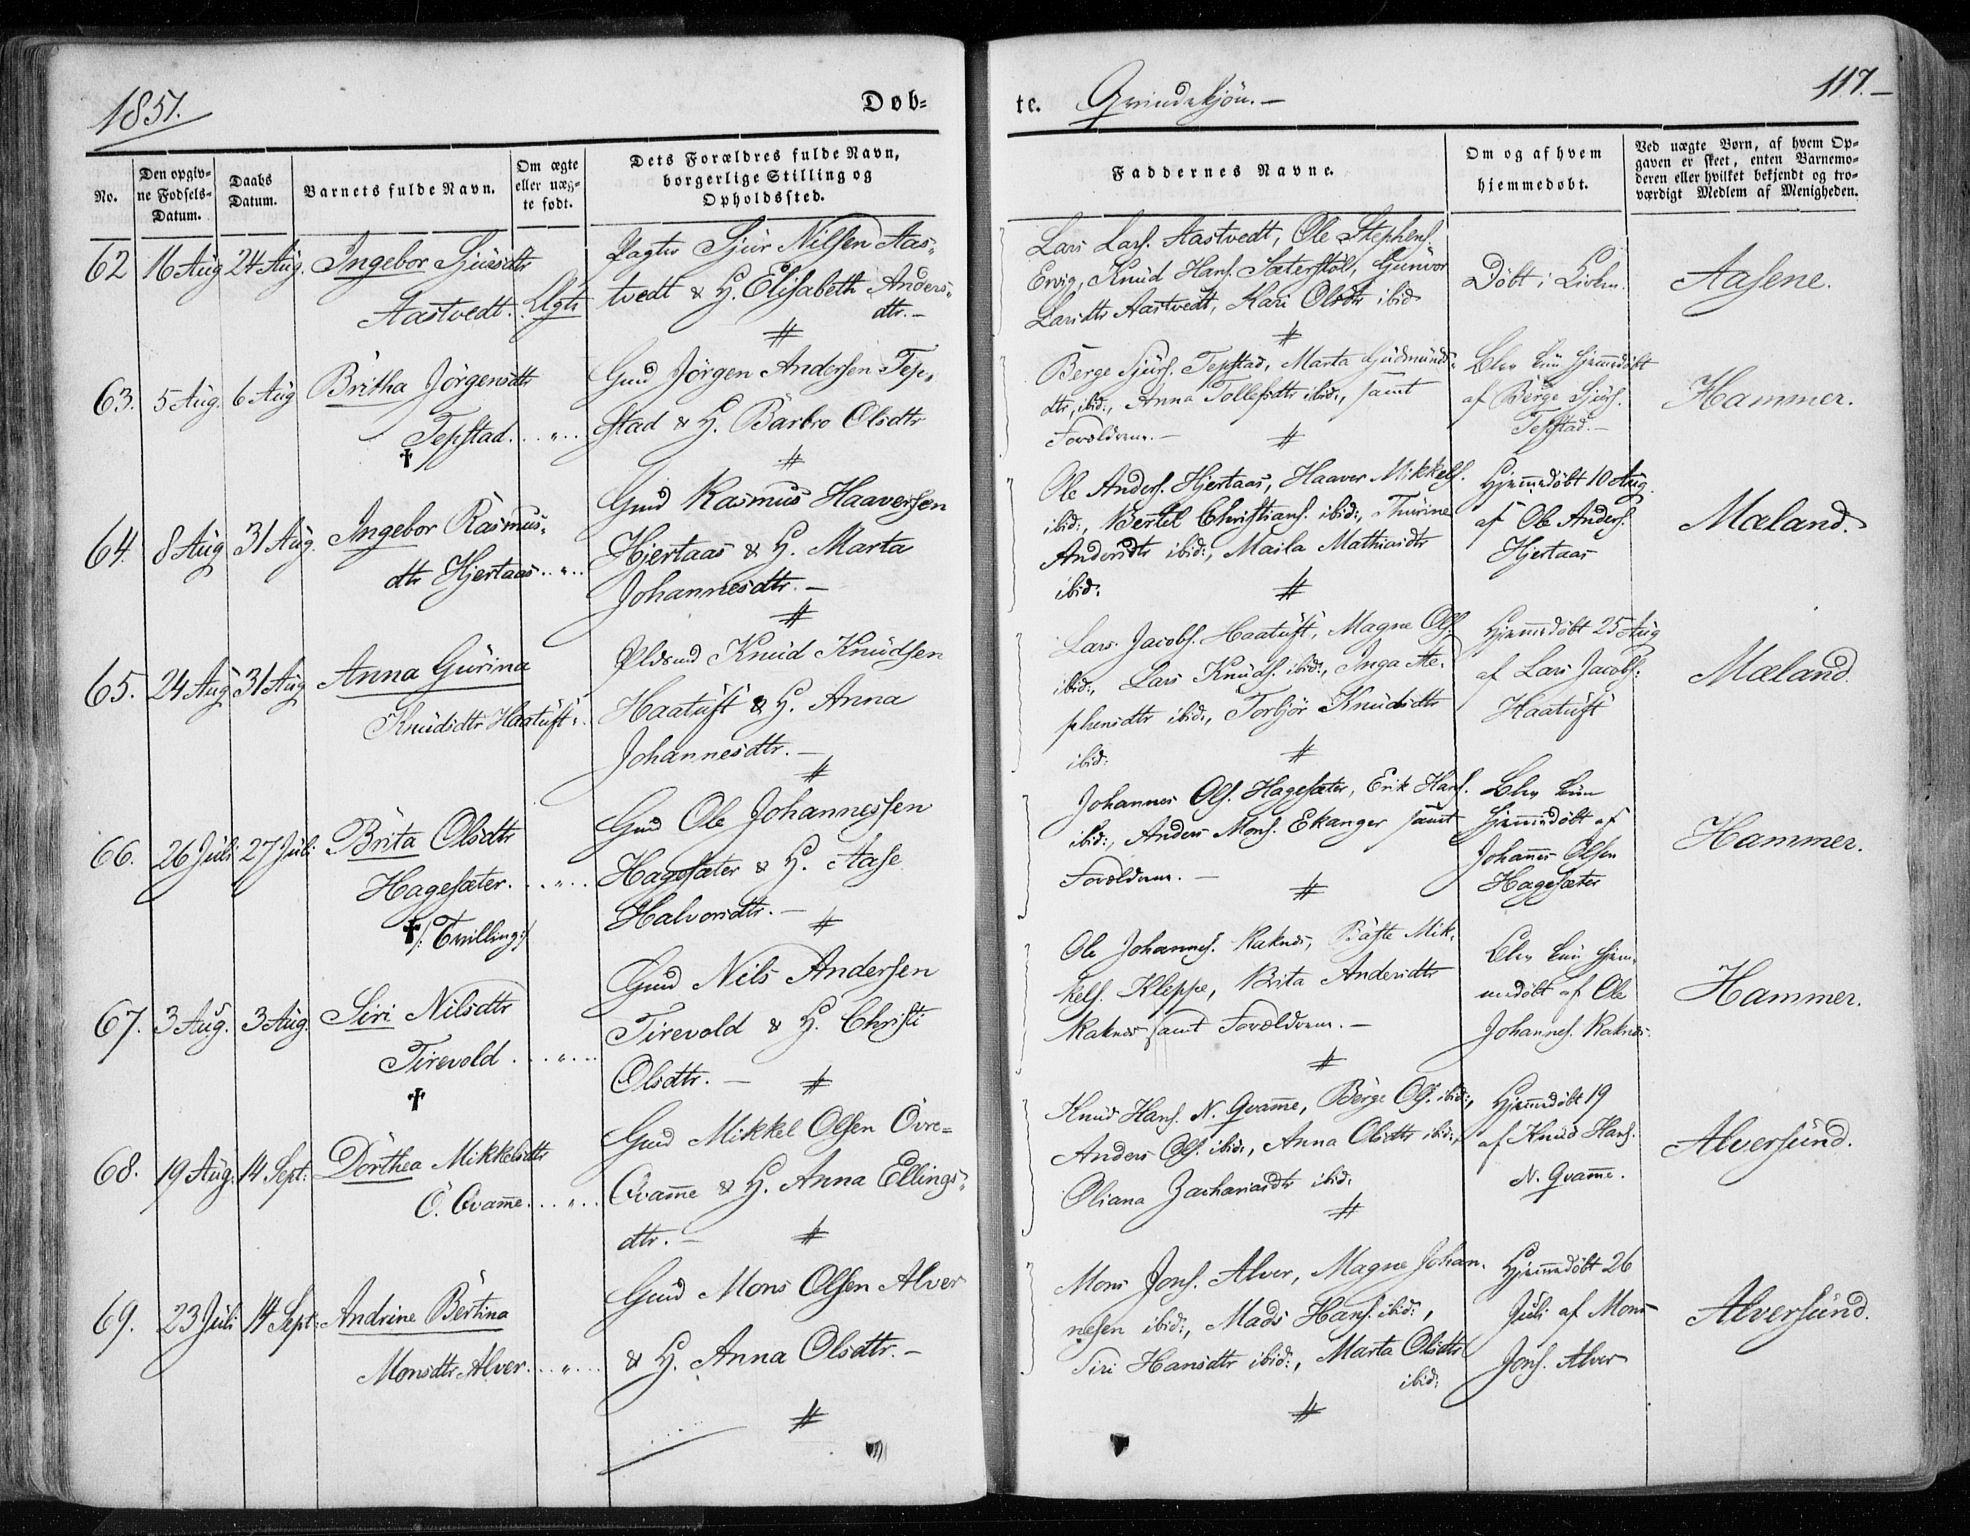 1851.
Døb-
te. Qvindekjön.-
117.-
No.
Den opgiv-
ne Fødsels-
Datum.
Daabs
Datum.
Barnets fulde Navn.
Om ægte
eller uæg-
te født.
Dets Forældres fulde Navn,
borgerlige Stilling og
Opholdssted.
Faddernes Navne.
Om og af hvem
hjemmedøbt.
Ved uægte Børn, af hvem Op-
gaven er skeet, enten Barnemo-
deren eller hvilket bekjendt og tro-
værdigt Medlem af Menigheden.
62 16 Aug 24 Aug. Ingebor Sjursdtr
Aastvedt. Ægte
Sjur Nilsen Aas-
tvedt & H. Elisabeth Anders-
dtr.-
Lars Lars. Aastvedt, Ole Stephens.
Knud Hans. Sæterstöl, Gunvor
Larsdtr Aastvedt, Kari Olsdtr ibid
Döbt i Kirken.
Aasene.
63. 5 Aug. 6 Aug Britha Jörgensdtr
Tepstad. . . " . .
†
Gmd Jörgen Andersen Tep-
stad & H. Barbro Olsdtr
Berge Sjurs. Tepstad, Marta Gudmunds-
dtr, ibid:, Anna Tollefsdtr ibid:, samt
Forældrene.-
Blev kun hjemmedöbt
af Berge Sjurs.
Tepstad.-
Hammer.
64. 8 Aug 31 Aug. Ingebor Rasmus-
dtr Hjertaas . . " . .
Gmd Rasmus Haaversen
Hjertaas & H. Marta
Johannesdtr.-
Ole Anders. Hjertaas, Haaver Mikkels.
ibid:, Bertel Christians. ibid:, Thurine
Andersdtr ibid:, Maila Mathiasdtr
ibid:
Hjemmedöbt 10 Aug.
af Ole Anders.
Hjertaas
Mæland.
65. 24 Aug 31 Aug Anna Gurina
Knudsdtr Haatuft " .
Pldsmd Knud Knudsen
Haatuft & H. Anna
Johannesdtr.-
Lars Jacobs. Haatuft, Magne Ols.
ibid:, Lars Knuds. ibid:, Inga Ste-
phensdtr ibid:, Torbjör Knudsdtr
ibid:
Hjemmedöbt 25 Aug
af Lars Jacobs.
Haatuft
Mæland.
66. 26 Juli 27 Juli Brita Olsdtr
Hagesæter. . . " . .
† /: Tvilling :/
Gmd Ole Johannessen
Hagesæter & H. Aase
Halvorsdtr.-
Johannes Ols. Hagesæter, Erik Hans.
ibid:, Anders Mons. Ekanger samt
Forældrene.-
Blev kun
hjemmedöbt af
Johannes Olsen
Hagesæter
Hammer.
67. 3 Aug. 3 Aug. Siri Nilsdtr
Tirevold . . . " . . .
†
Gmd Nils Andersen
Tirevold & H. Christi
Olsdtr.-
Ole Johannes. Raknes, Mik-
kels. Kleppe, Brita Andersdtr
Raknes samt Forældrene.-
Blev kun hjem-
medöbt af Ole
Johannes. Raknes.
Hammer.
68. 19 Aug. 14 Sept: Dorthea Mikkelsdtr
Ö. Qvamme. . . " . .
Gmd Mikkel Olsen Övre-
Qvamme & H. Anna Ellings-
dtr.-
Knud Hans. N. Qvamme, Börge Ols. ibid:,
Anders Ols. ibid:, Anna Olsdtr ibid:,
Oliana Zachariasdtr ibid:
Hjemmedöbt 19
af Knud Hans.
N. Qvamme.
Alversund.
69. 23 Juli 14 Sept: Andrine Bertina
Monsdtr Alver. . . " . . .
Gmd Mons Olsen Alver
& H. Anna Olsdtr.-
Mons Jons. Alver, Magne Johan-
nesen ibid:, Mads Hans. ibid:,
Siri Hansdtr ibid:, Marta Olsdtr
ibid:
Hjemmedöbt 26
Juli af Mons
Jons. Alver
Alversund.